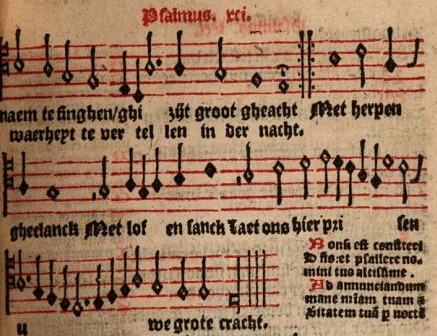 Psalmus. xci.
naem te singhen/ghi zijt groot gheacht Met herpen
waerheyt te ver tel len in der nacht.
gheclanck Met lof en sanck Laet ons hier pri sen
Bonū est confiteri
Dño: et psallere no-
mini tuo altissime.
Ad annunciandum
mane mīam tuam z
u we grote cracht.
v̄itatem tuā p nocte